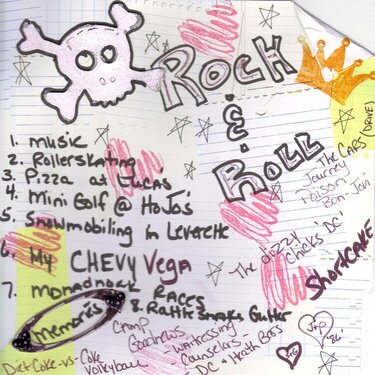 ROCK
&
ROLL
1. music
2. Rollerskating
3. Pizza at Luca's
4. Mini Golf @ HoJo's
5. Snowmobiling in Leverette
6. My CHEVY Vega
7. monadnock RACES
8. Rattlesnake Gutter
The CARS (DRIVE)
Journey
Poison
Bon Jovi
The dizzy
Chicks "DC"
ShortCAKE
memories
Diet Coke -vs- Coke
Volleyball
Camp
Goodnews
- waitressing
- Counselors -
DC & Heath Bars
J+P
"86"